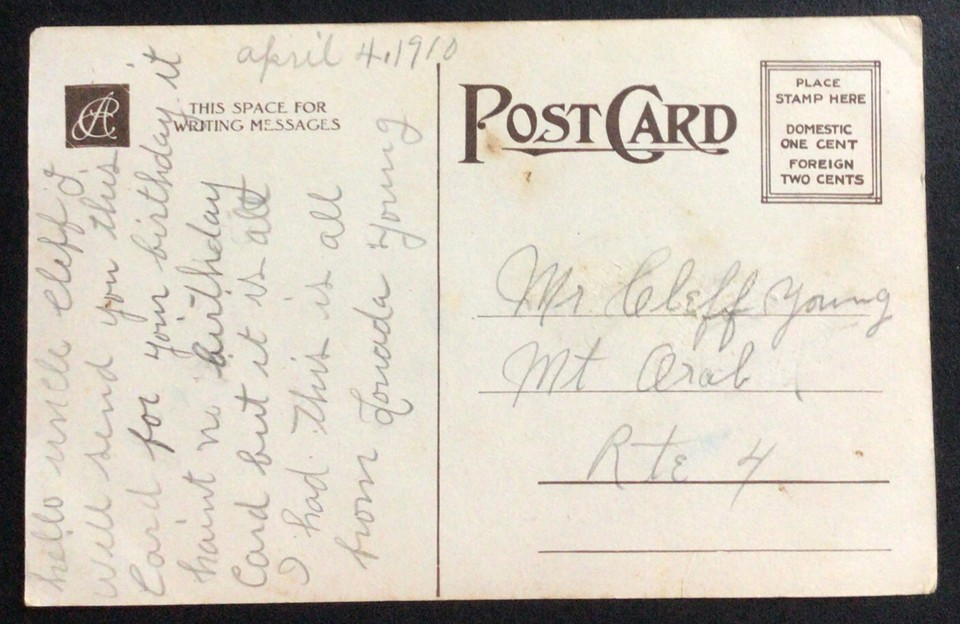 april 4, 1910
THIS SPACE FOR
WRITING MESSAGES
hello uncle Cleff I
will send you this
Card for your birthday it
haint no birthday
Card but it is all
I had this is all
from Louada Young
POST CARD
PLACE
STAMP HERE
DOMESTIC
ONE CENT
FOREIGN
TWO CENTS
Mr Cleff Young
Mt Orab
Rte 4